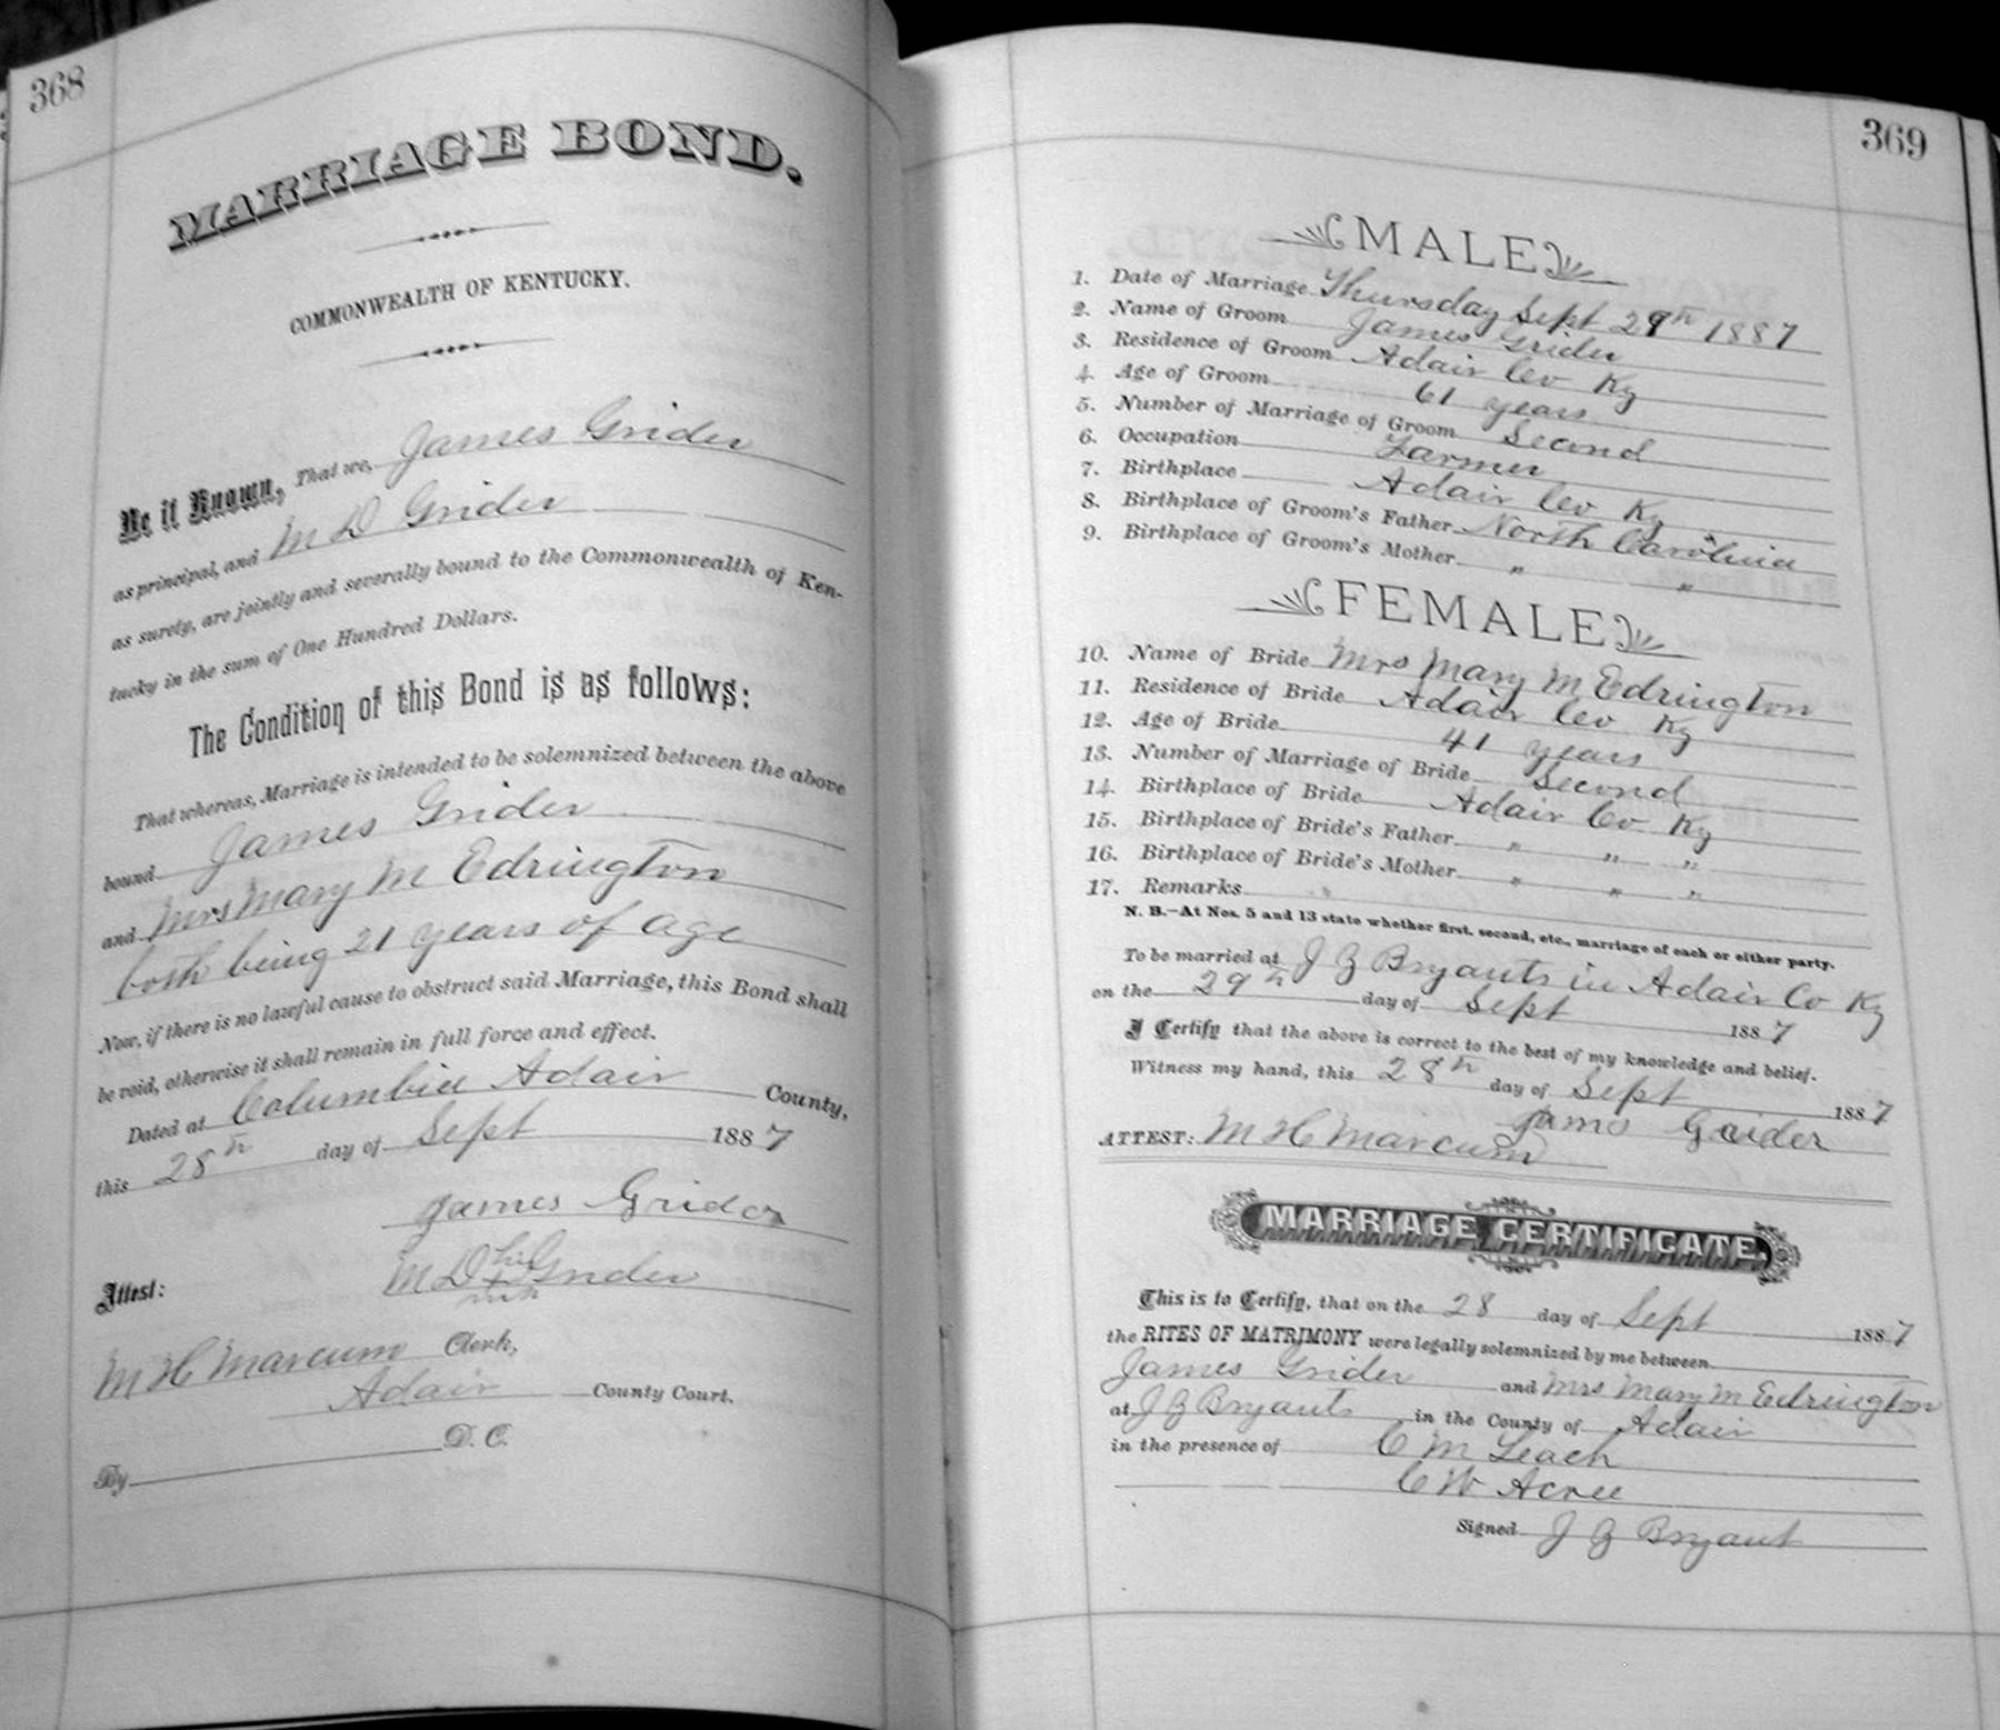 368
MARRIAGE BOND.
COMMONWEALTH OF KENTUCKY.
Be it Known, That we, James Grider
as principal, and M D Grider
as surety, are jointly and severally bound to the Commonwealth of Ken-
tucky in the sum of One Hundred Dollars.
The Condition of this Bond is as follows:
That whereas, Marriage is intended to be solemnized between the above
bound James Grider
and Mrs Mary M Edrington
both being 21 years of age
Now, if there is no lawful cause to obstruct said Marriage, this Bond shall
be void, otherwise it shall remain in full force and effect.
Dated at Columbia Adair County,
this 28th day of Sept 1887
James Grider
M D his Grider
mark
Attest:
M H Marcum Clerk,
Adair County Court.
By D. C.
369
MALE
1. Date of Marriage Thursday Sept 29th 1887
2. Name of Groom James Grider
3. Residence of Groom Adair Co Ky
4. Age of Groom 61 years
5. Number of Marriage of Groom Second
6. Occupation Farmer
7. Birthplace Adair Co Ky
8. Birthplace of Groom's Father North Carolina
9. Birthplace of Groom's Mother " "
FEMALE
10. Name of Bride Mrs Mary M Edrington
11. Residence of Bride Adair Co Ky
12. Age of Bride 41 years
13. Number of Marriage of Bride Second
14. Birthplace of Bride Adair Co Ky
15. Birthplace of Bride's Father " " "
16. Birthplace of Bride's Mother " " "
17. Remarks
N. B.—At Nos. 5 and 13 state whether first, second, etc., marriage of each or either party.
To be married at J G Bryants in Adair Co Ky
on the 29th day of Sept 1887
I Certify that the above is correct to the best of my knowledge and belief.
Witness my hand, this 28th day of Sept 1887
James Grider
ATTEST: M H Marcum
MARRIAGE CERTIFICATE.
This is to Certify, that on the 28 day of Sept 1887
the RITES OF MATRIMONY were legally solemnized by me between
James Grider and Mrs Mary M Edrington
at J G Bryants in the County of Adair
in the presence of C M Leach
C W Acree
Signed J G Bryant